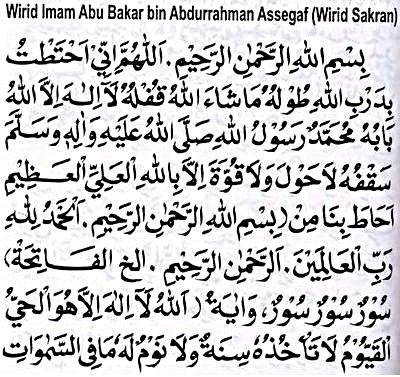 Wirid Imam Abu Bakar bin Abdurrahman Assegaf (Wirid Sakran)
بِسْمِ اللهِ الرَّحْمٰنِ الرَّحِيْمِ. اَللّٰهُمَّ اِنِّيْ اَحْتَطْتُ
بِدَرْبِ اللهِ طُوْلُهُ مَا شَاءَ اللهُ قُفْلُهُ لَآ اِلٰهَ اِلَّا اللهُ
بَابُهُ مُحَمَّدٌ رَسُوْلُ اللهِ صَلَّى اللهُ عَلَيْهِ وَاٰلِهِ وَسَلَّمَ
سَقْفُهُ لَا حَوْلَ وَلَا قُوَّةَ اِلَّا بِاللهِ الْعَلِيِّ الْعَظِيْمِ
اَحَاطَ بِنَا مِنْ (بِسْمِ اللهِ الرَّحْمٰنِ الرَّحِيْمِ. اَلْحَمْدُ لِلّٰهِ
رَبِّ الْعَالَمِيْنَ. اَلرَّحْمٰنِ الرَّحِيْمِ. الخ الفَاتِحَة)
سُوْرٌ سُوْرٌ سُوْرٌ، وَاٰيَةُ (اَللهُ لَآ اِلٰهَ اِلَّا هُوَ الْحَيُّ
الْقَيُّوْمُ لَا تَأْخُذُهُ سِنَةٌ وَلَا نَوْمٌ لَهُ مَا فِى السَّمٰوَاتِ